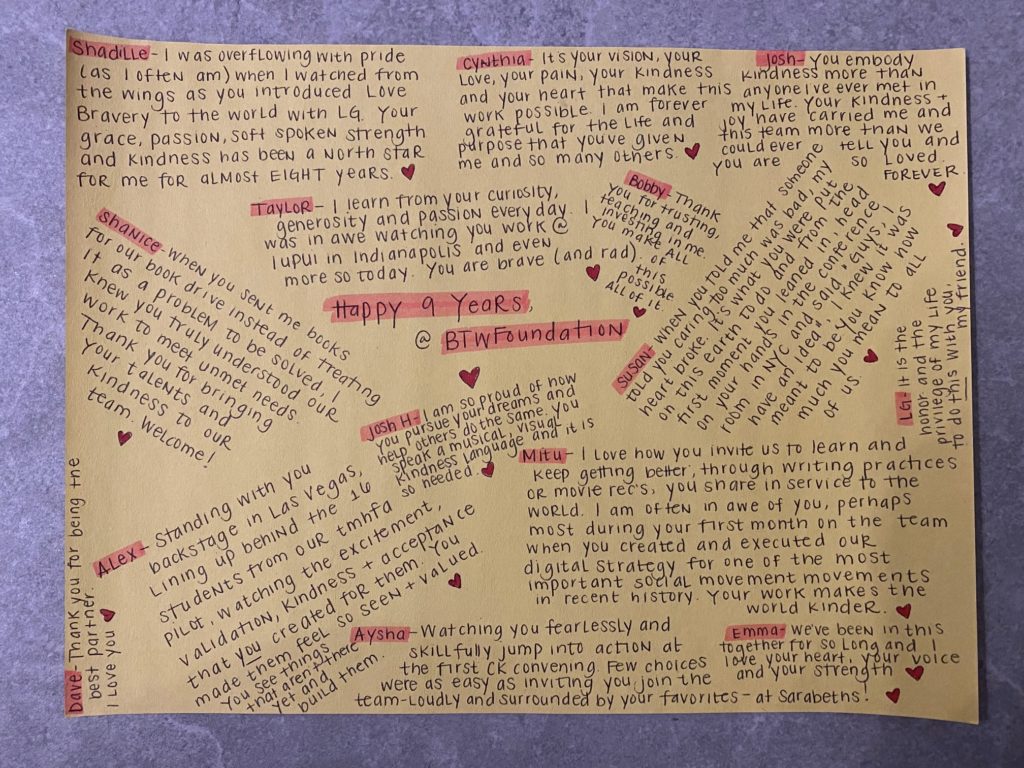 Shadille- I was overflowing with pride
(as I often am) when I watched from
the wings as you introduced Love
Bravery to the world with LG. Your
grace, passion, soft spoken strength
and kindness has been a north star
for me for almost EIGHT years.
Cynthia- It's your vision, your
love, your pain, your kindness
and your heart that make this
work possible. I am forever
grateful for the life and
purpose that you've given
me and so many others.
Josh- You embody
kindness more than
anyone ive ever met in
my life. Your kindness +
joy have carried me and
this team more than we
could ever tell you and
you are so loved.
FOREVER.
Taylor- I learn from your curiosity,
generosity and passion everyday. I
was in awe watching you work @
Iupui in Indianapolis and even
more so today. You are brave (and rad).
Bobby- Thank
you for trusting,
teaching and
investing in me.
You make ALL
of this
possible
All of it.
Shanice- when you sent me books
for our book drive instead of treating
it as a problem to be solved, I
knew you truly understood our
work to meet unmet needs.
Thank you for bringing
your talents and
kindness to our
team. Welcome!
Happy 9 Years,
@ BTWFoundation
Susan- when you told me that someone
told you caring too much was bad, my
heart broke. It's what you were put
on this earth to do and from the
first moment you leaned in, head
on your hands in the conference
room in NYC and said, "Guys, I
have an idea", I knew it was
meant to be. You know how
much you mean to all
of us.
LG- It is the
honor and the
privilege of my life
to do this with you,
my friend.
Josh H- I am so proud of how
you pursue your dreams and
help others do the same. You
speak a musical, visual
kindness language and it is
so needed.
Mitu- I love how you invite us to learn and
keep getting better, through writing practices
or movie rec's, you share in service to the
world. I am often in awe of you, perhaps
most during your first month on the team
when you created and executed our
digital strategy for one of the most
important social movement movements
in recent history. Your work makes the
world kinder.
Alex- Standing with you
backstage in Las Vegas,
lining up behind the 16
students from our tmhfa
pilot, watching the excitement,
validation, kindness + acceptance
that you created for them. You
made them feel so seen + valued.
You see things
that aren't there
yet and
build them.
Dave- Thank you for being the
best partner.
I love you
Aysha- Watching you fearlessly and
skillfully jump into action at
the first CK convening. Few choices
were as easy as inviting you join the
team-loudly and surrounded by your favorites- at Sarabeths!
Emma- we've been in this
together for so long and I
love your heart, your voice
and your strength